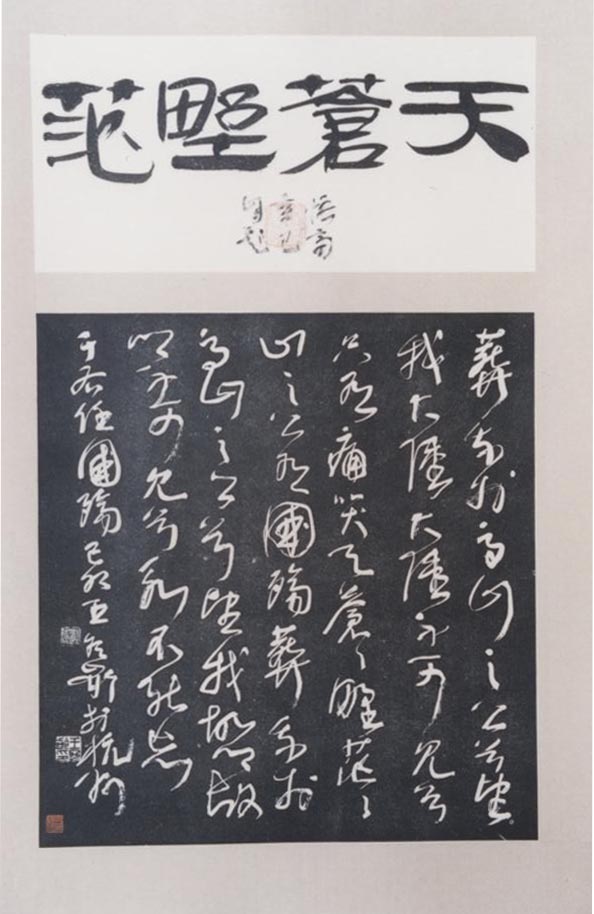 天蒼野茫
葬我於高山之上兮望
我大陸大陸不可見兮
只有痛哭天蒼々野茫々
山之上有國殤葬我於
高山之上兮望我故鄉故
鄉不可見兮永不能忘
于右任國殤己卯王冬齡於杭州